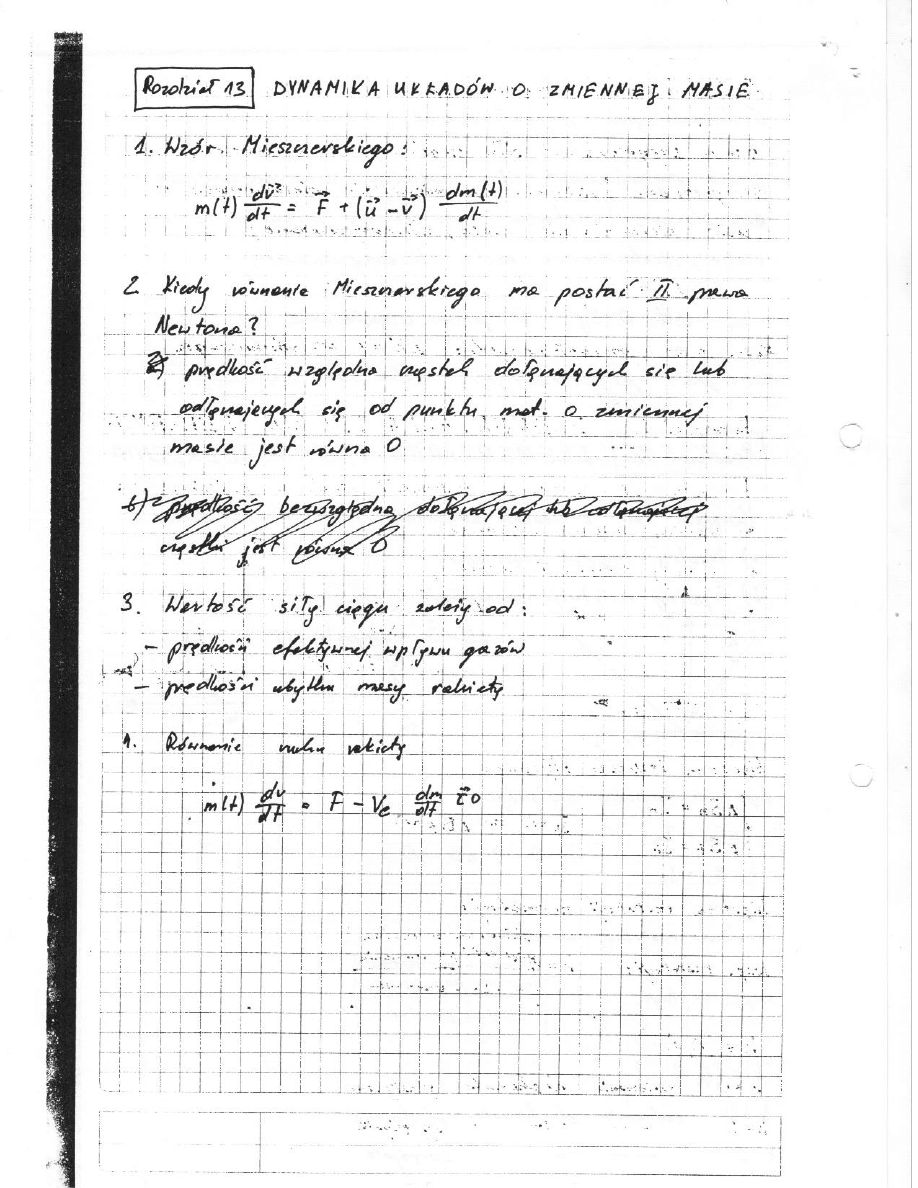 Rozdział 13 DYNAMIKA UKŁADÓW O ZMIENNEJ MASIE
1. Wzór Mieszczerskiego:
m(t) dv⃗/dt = F⃗ + (u⃗ - v⃗) dm(t)/dt
2 Kiedy równanie Mieszczerskiego ma postać II prawa
Newtona?
prędkość względna cząstek dołączających się lub
odłączających się od punktu mat. o zmiennej
masie jest równa 0
b) prędkość bezwzględna dołączającej lub odłączającej
cząstki jest równa 0
3. Wartość siły ciągu zależy od:
- prędkości efektywnej wpływu gazów
- prędkości ubytku masy rakiety
4. Równanie ruchu rakiety
m(t) dv/dt = F - Ve dm/dt τ⃗0